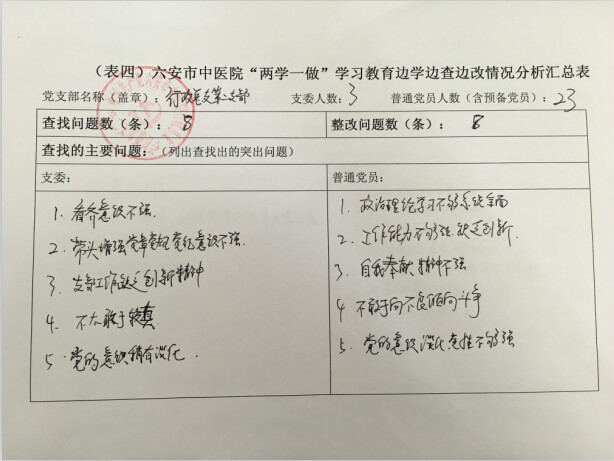 (表四)六安市中医院“两学一做”学习教育边学边查边改情况分析汇总表
党支部名称(盖章):行政党支第二支部 支委人数:3 普通党员人数(含预备党员):23
查找问题数(条):8 整改问题数(条):8
查找的主要问题:(列出查找出的突出问题)
支委: 普通党员:
1. 看齐意识不强.
2. 带头增强党章党规党纪意识不强.
3. 支部工作缺乏创新精神
4. 不太敢于较真
5. 党的意识稍有淡化.
1. 政治理论学习不够系统全面
2. 工作能力不够强.缺乏创新.
3. 自我奉献精神不强
4 不敢于向不良倾向斗争
5. 党的意识淡化党性不够强